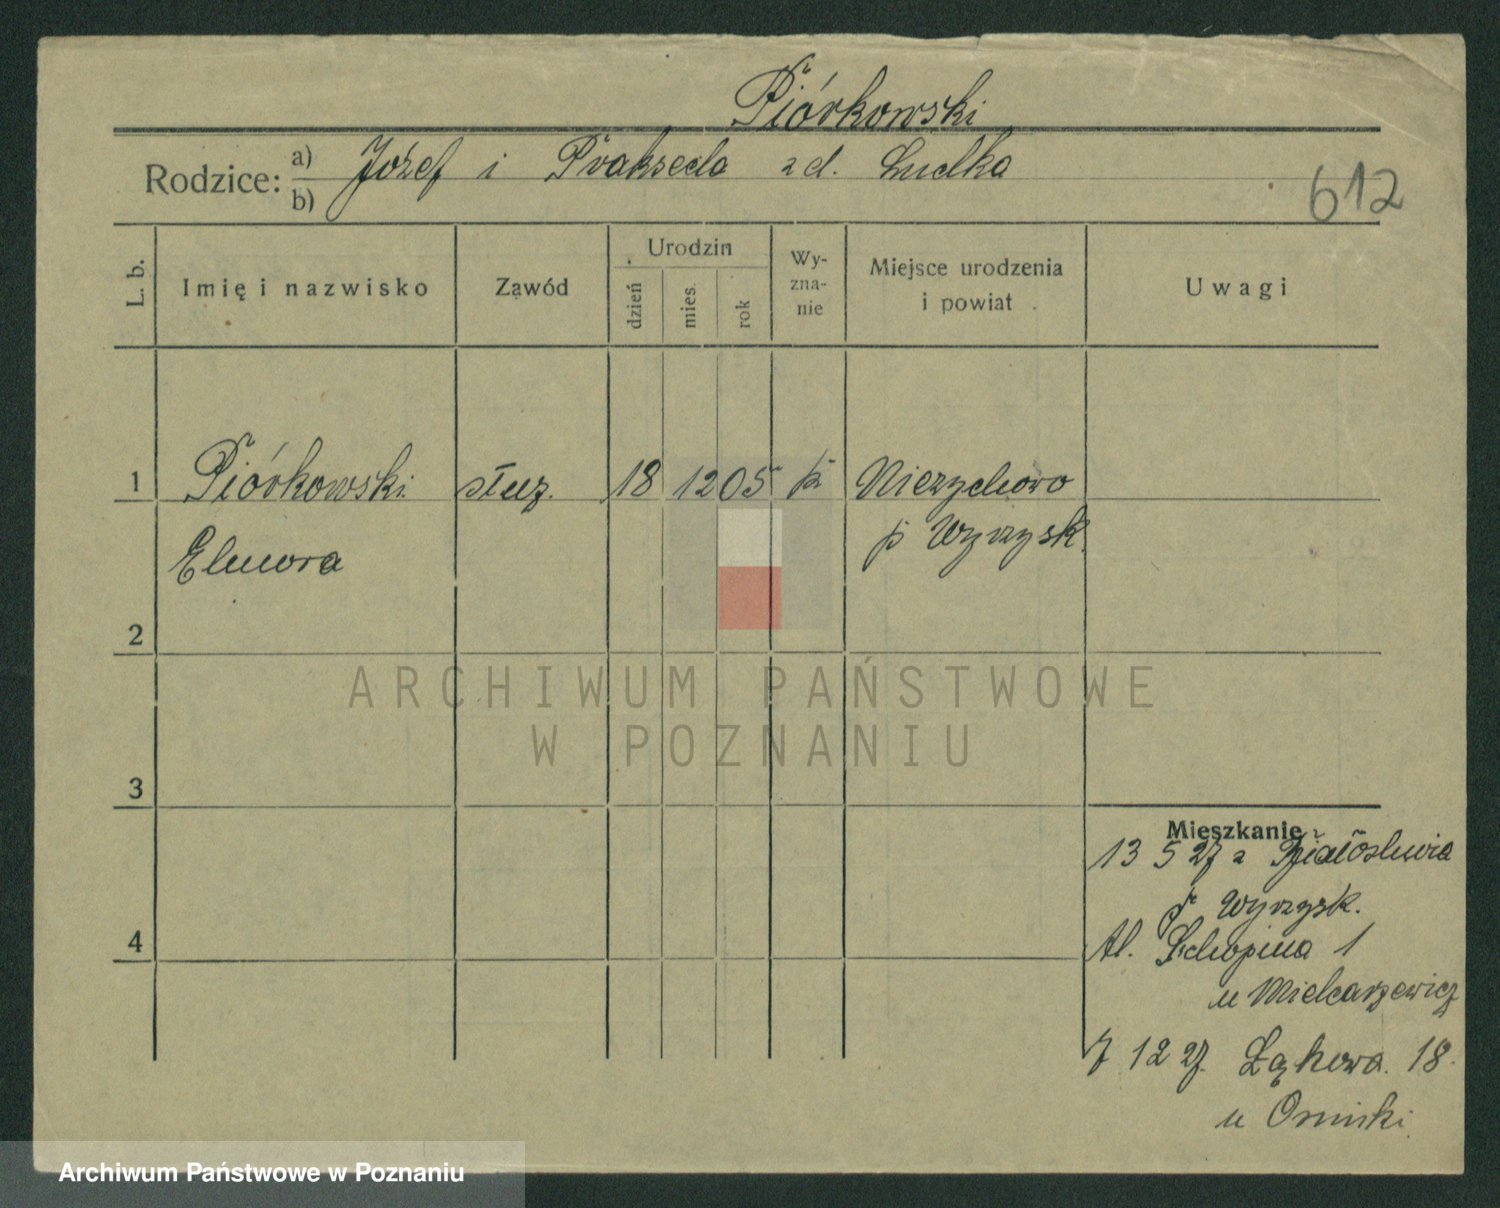 Piórkowski
Rodzice: a) Józef i Prakseda z d. Ludka
b)
612
L. b.
Imię i nazwisko
Zawód
Urodzin
dzień
mies.
rok
Wy-
zna-
nie
Miejsce urodzenia
i powiat
Uwagi
1 Piórkowski służ. 18 12 05 k Niezychowo
Elenora p Wyrzysk.
2
3
4
Mieszkanie
13 5 27 z Białosliwia
p Wyrzysk.
Al. Schopina 1
u Mielcarzewicz
7 12 27. Łąkowa. 18.
u Osinski
ARCHIWUM PAŃSTWOWE
W POZNANIU
Archiwum Państwowe w Poznaniu